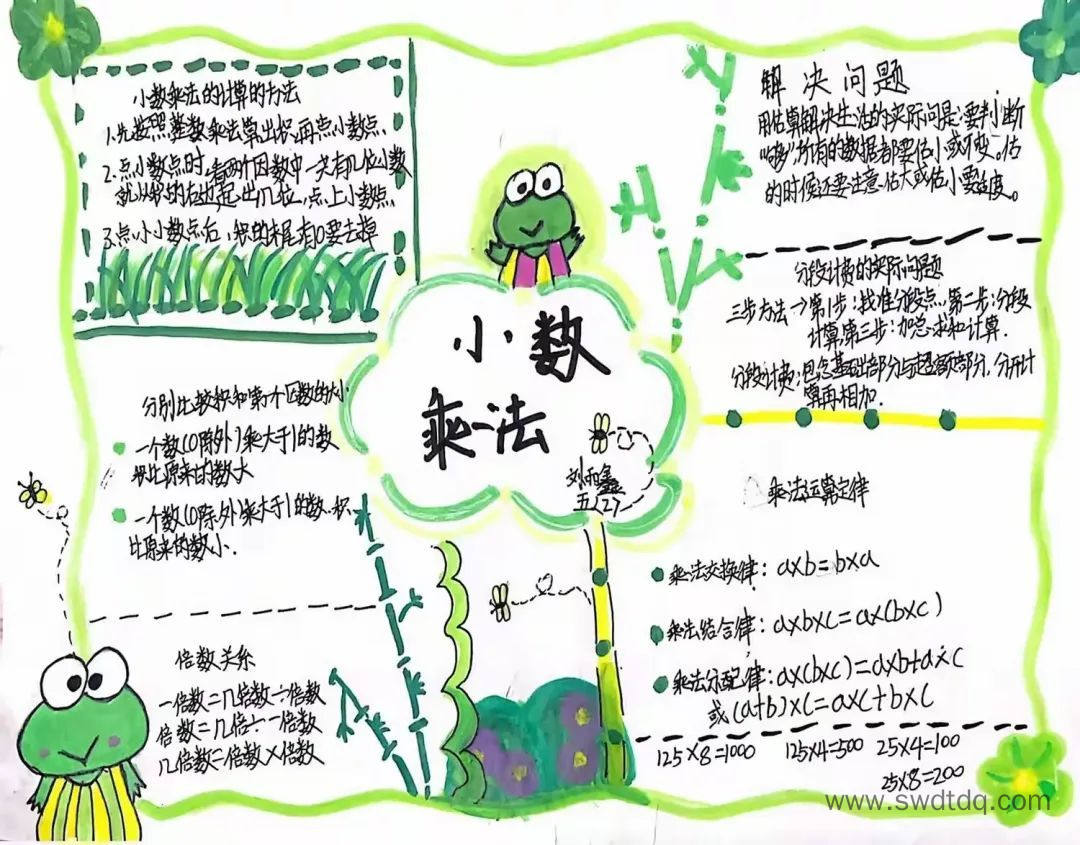 小数乘法的计算的方法
1.先按照整数乘法算出积,再点小数点.
2.点小数点时,看两个因数中一共有几位小数
就从积的右边起出几位,点上小数点.
3.点小小数点后,积的末尾有0要去掉
小数
乘法
刘雨鑫
五(2)
解决问题
用估算解决生活的实际问是:要判断
"够",所有的数据都要估小或不变。估
的时候还要注意,估大或估小要适度。
分段计费的实际问题
三步方法→第1步:找准分段点,第二步:分段
计算,第三步:加总求和计算.
分段计费:包含基础部分与超额部分,分开计
算再相加.
分别比较积和第一个因数的大小:
一个数(0除外)乘大于1的数
积比原来的数大
一个数(0除外)乘大于1的数.积
比原来的数小.
倍数关系
一倍数=几倍数÷倍数
倍数=几倍÷一倍数
几倍数=倍数×倍数
乘法运算定律
乘法交换律:a×b=b×a
乘法结合律:a×b×c=a×(b×c)
乘法分配律:a×(b×c)=a×b+a×c
或(a+b)×c=a×c+b×c
125×8=1000 125×4=500 25×4=100
25×8=200
www.swdtdq.com